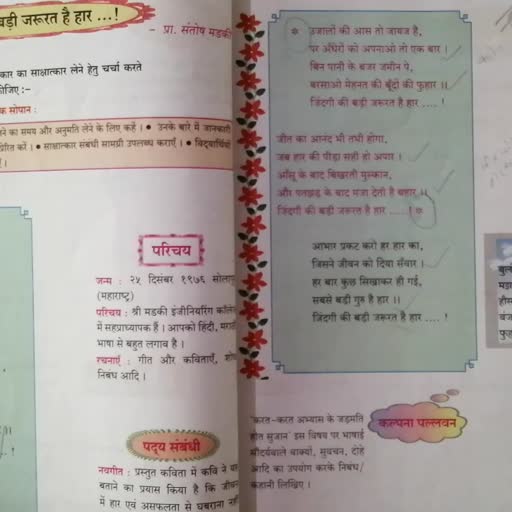 बड़ी जरूरत है हार ...!
- प्रा. संतोष मडकी
कार का साक्षात्कार लेने हेतु चर्चा करते
कीजिए :-
क सोपान :
ने का समय और अनुमति लेने के लिए कहें । ● उनके बारे में जानकारी
प्रेरित करें । ● साक्षात्कार संबंधी सामग्री उपलब्ध कराएँ । ● विद्यार्थियों
परिचय
जन्म : २५ दिसंबर १९७६ सोलापु
(महाराष्ट्र)
परिचय : श्री मडकी इंजीनियरिंग कॉलेज
में सहप्राध्यापक हैं । आपको हिंदी, मराठी
भाषा से बहुत लगाव है ।
रचनाएँ : गीत और कविताएँ, शोध
निबंध आदि ।
पद्य संबंधी
नवगीत : प्रस्तुत कविता में कवि ने यह
बताने का प्रयास किया है कि जीवन
में हार एवं असफलता से घबराना नहीं
उजालों की आस तो जायज है,
पर अँधेरों को अपनाओ तो एक बार ।
बिन पानी के बंजर जमीन पे,
बरसाओ मेहनत की बूँदों की फुहार ।।
जिंदगी की बड़ी जरूरत है हार .... !
जीत का आनंद भी तभी होगा,
जब हार की पीड़ा सही हो अपार ।
आँसू के बाद बिखरती मुस्कान,
और पतझड़ के बाद मजा देती है बहार ।।
जिंदगी की बड़ी जरूरत है हार .....!
आभार प्रकट करो हर हार का,
जिसने जीवन को दिया सँवार ।
हर बार कुछ सिखाकर ही गई,
सबसे बड़ी गुरु है हार ।।
जिंदगी की बड़ी जरूरत है हार .... !
कल्पना पल्लवन
'करत-करत अभ्यास के जड़मति
होत सुजान' इस विषय पर भाषाई
सौंदर्यवाले वाक्यों, सुवचन, दोहे
आदि का उपयोग करके निबंध/
कहानी लिखिए ।